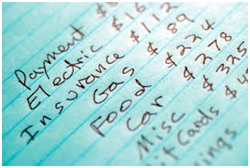 Payment $
Electric $112
Insurance $ 89
Gas $ 224
Food $ 278
Car $ 325
Misc $
Cards $